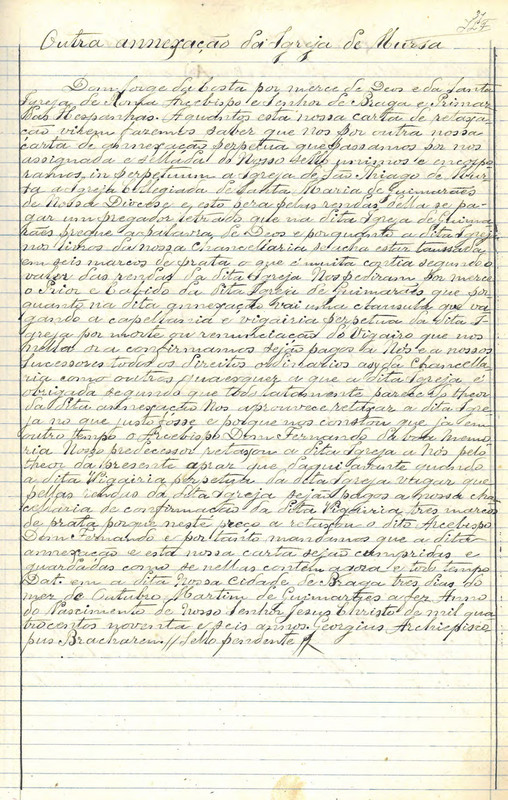 Outra annexação da Igreja de Mursa
Dom Jorge da Costa por merce de Deos e da Santa
Igreja de Roma Arcebispo e Senhor de Braga e Primaz
das Hespanhas. A quantos esta nossa carta de relaxa-
ção virem fazemos saber que nos por outra nossa
carta de annexação perpetua que passamos por nos
assignada e sellada do Nosso Sello unimos e encorpo-
ramos, in perpetuum a Igreja de São Thiago de Mur-
sa a Igreja Collegiada de Santa Maria de Guimarães
de Nossa Diocese e esto sera pelas rendas della se pa-
gar um pregador letrado que na dita Igreja de Guima-
rães pregue a palavra de Deos e porquanto a dita Igreja
nos livros da nossa Chancellaria se acha estar taussada
em seis marcos de prata o que é muita contia segundo o
valer das rendas da dita Igreja Nos pediram por merce
o Prior e Cabido da dita Igreja de Guimarães que por
quanto na dita annexação vai uma clausula que va-
gando a capellania e vigairia perpetua da dita I-
greja por morte ou renunciação do Vigairo que nos
nella ora confirmamos sejão pagos a Nós e a nossos
Sucessores todos os direitos ordinarios da Chancella-
ria como outros quaesquer a que a dita Igreja é
obrigada segundo que todo latamente parece do theor
da dita annexação Nos aprouvece relaxar a dita Igre-
ja no que justo fosse e porque nos constou que já em
outro tempo o Arcebispo Dom Fernando da boa memo-
ria Nosso predecessor relaxou a dita Igreja a Nós pelo
theor da presente apraz que daqui avante quando
a dita Vigairia perpetua da dita Igreja vagar que
pellas rendas da dita Igreja sejão pagos a nossa cha
cellaria de confirmação da dita Vigairia tres marcos
de prata porque neste preço a relaxou o dito Arcebispo
Dom Fernando e por tanto mandamos que a dita
annexação e esta nossa carta sejão cumpridas e
guardadas como se nellas contem agora e todo tempo
Dat. em a dita Nossa Cidade de Braga tres dias do
mez de Outubro Martim de Guimarães a fez Anno
do Nascimento de Nosso Senhor Jesus Christo de mil qua
trocentos noventa e seis annos. Georgius Archiepisco
pus Bracharem // Sello pendente //